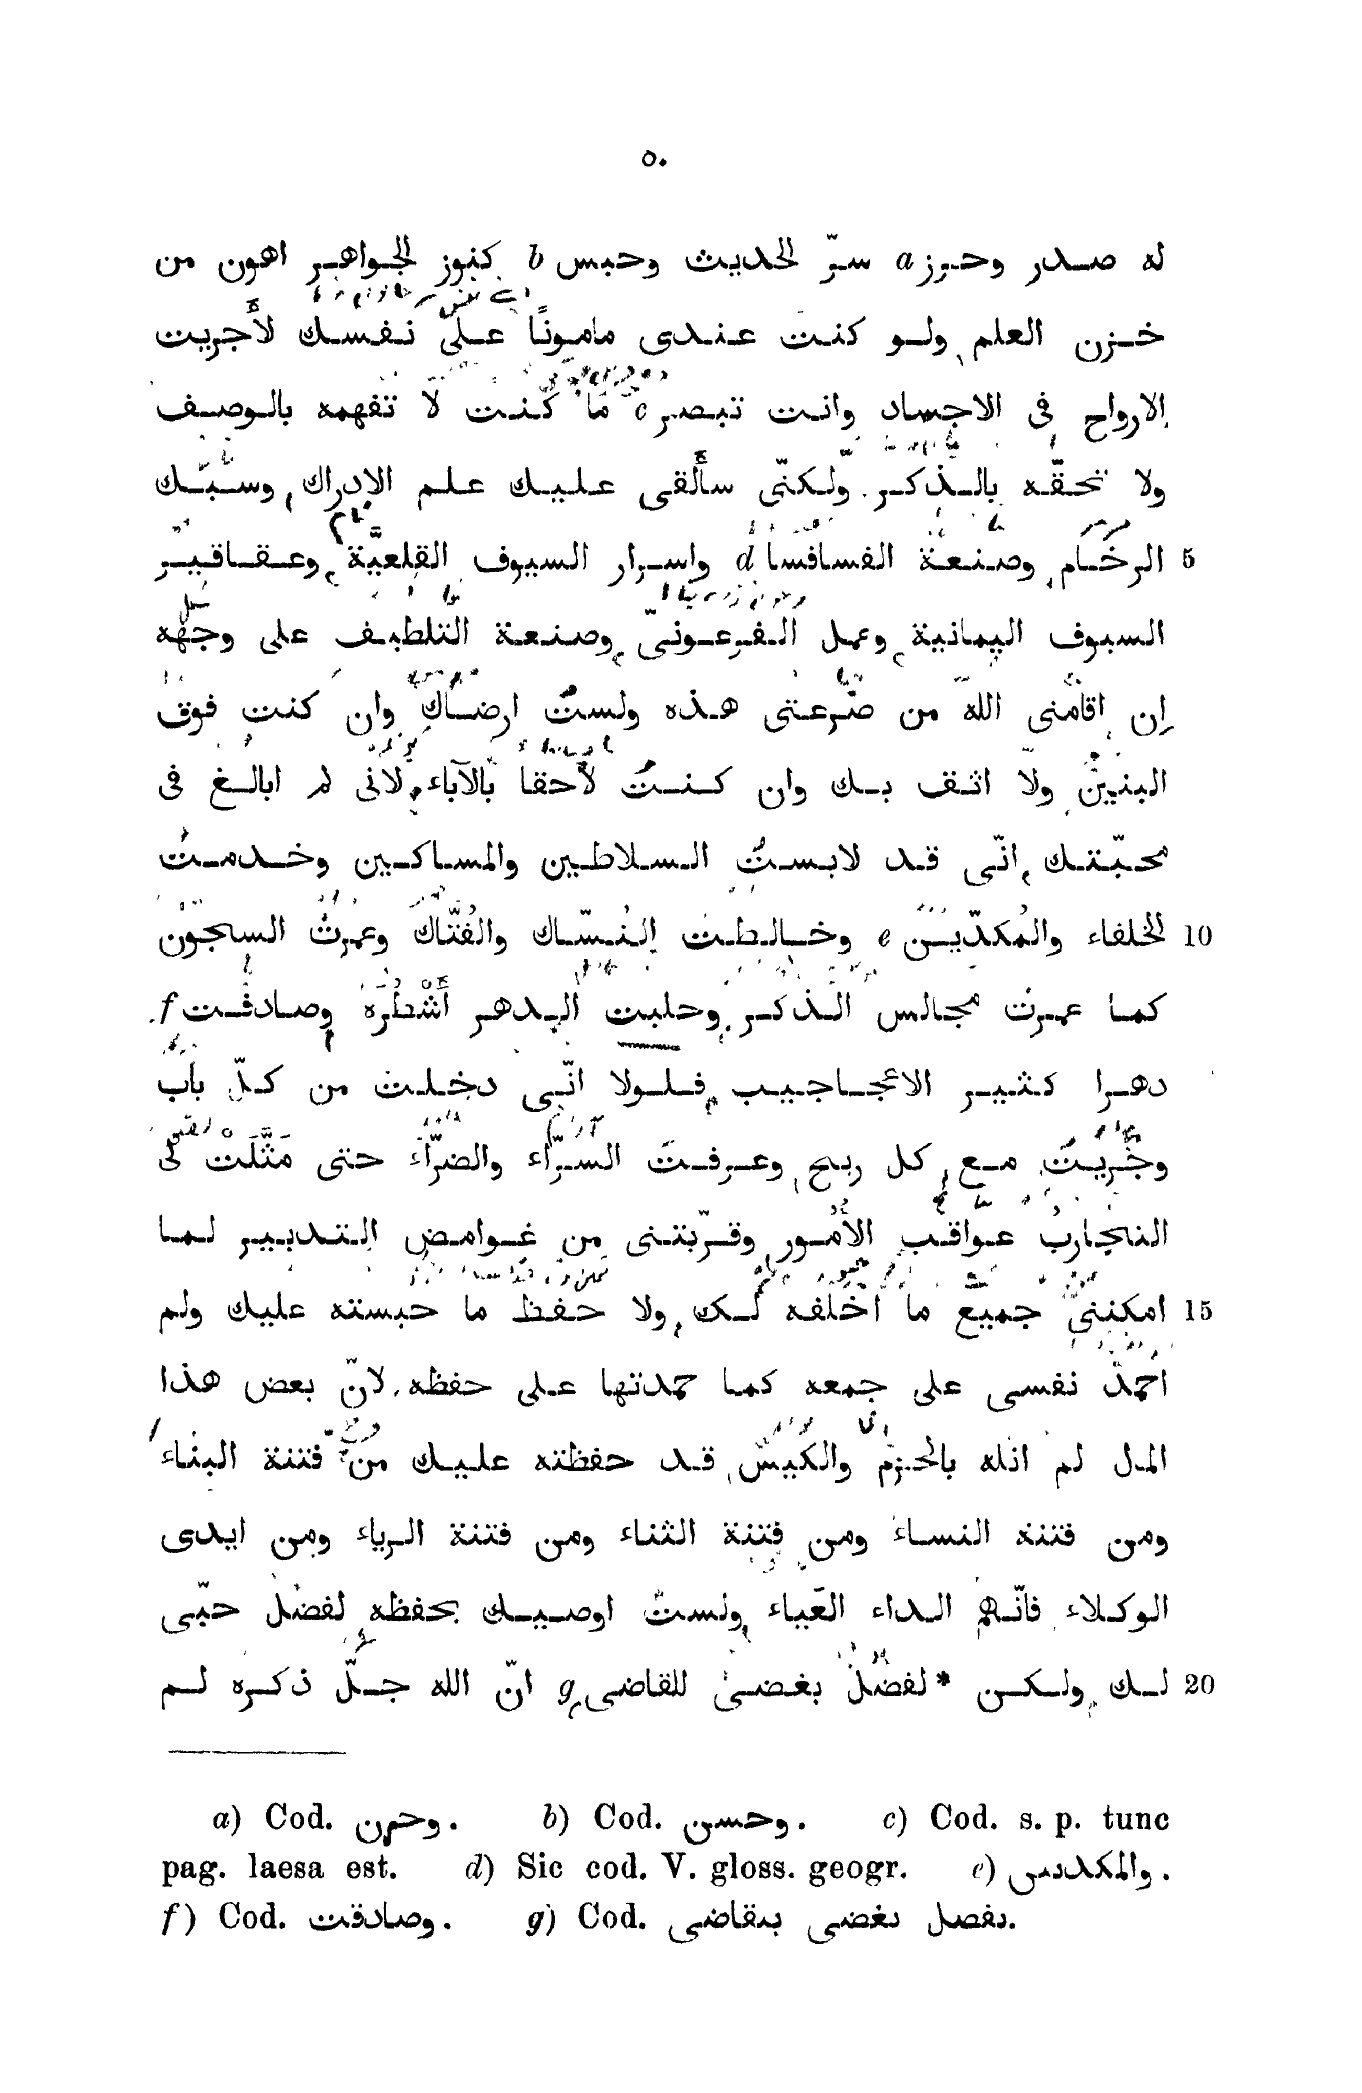 ٥٠
له صدر وحرز a سرّ الحديث وحبس b كنوز الجواهر اهون من
خزن العلم ولو كنت عندى مامونًا على نفسك لأجريت
الارواح فى الاجساد وانت تبصر c ما كنت لا تفهمه بالوصف
ولا تحقّه بالذكر ولكنّى سألقى عليك علم الادراك وسبك
5 الرخام وصنعة الفسافسا d واسرار السيوف القلعيّة وعقاقير
السيوف اليمانية وعمل الفرعونىّ وصنعة التلطيف على وجهه
ان اقامنى الله من صرعتى هذه ولستُ ارضاك وان كنت فوق
البنين ولا اثق بك وان كنتُ لاحقا بالآباء لانى لم ابالغ فى
محبّتك انّى قد لابستُ السلاطين والمساكين وخدمتُ
10 الخلفاء والمُكدّيين e وخالطت النُسّاك والفُتّاك وعمرتُ السجون
كما عمرتُ مجالس الذكر وحلبت الدهر أَشْطُرَهُ وصادفت f
دهرا كثير الاعاجيب فلولا انّى دخلت من كلّ باب
وجُريتُ مع كل ريح وعرفت السرّاء والضرّاء حتى مَثَّلَتْ لى
التجاربُ عواقب الأمور وقرّبتنى من غوامض التدبير لما
15 امكننى جميع ما اخلفه لك ولا حفظ ما حبسته عليك ولم
احمد نفسى على جمعه كما حمدتها على حفظه لانّ بعض هذا
المال لم انله بالحزم والكيس قد حفظته عليك من فتنة البناء
ومن فتنة النساء ومن فتنة الثناء ومن فتنة الرياء ومن ايدى
الوكلاء فانّهم الداء العَياء ولست اوصيك بحفظه لفضل حبّى
20 لك ولكن * لفضل بغضى للقاضى g انّ الله جلّ ذكره لم
a) Cod. وحرن. b) Cod. وحسن. c) Cod. s. p. tunc
pag. laesa est. d) Sic cod. V. gloss. geogr. e) والمكدس.
f) Cod. وصادقت. g) Cod. بفصل بغضى بقاضى.